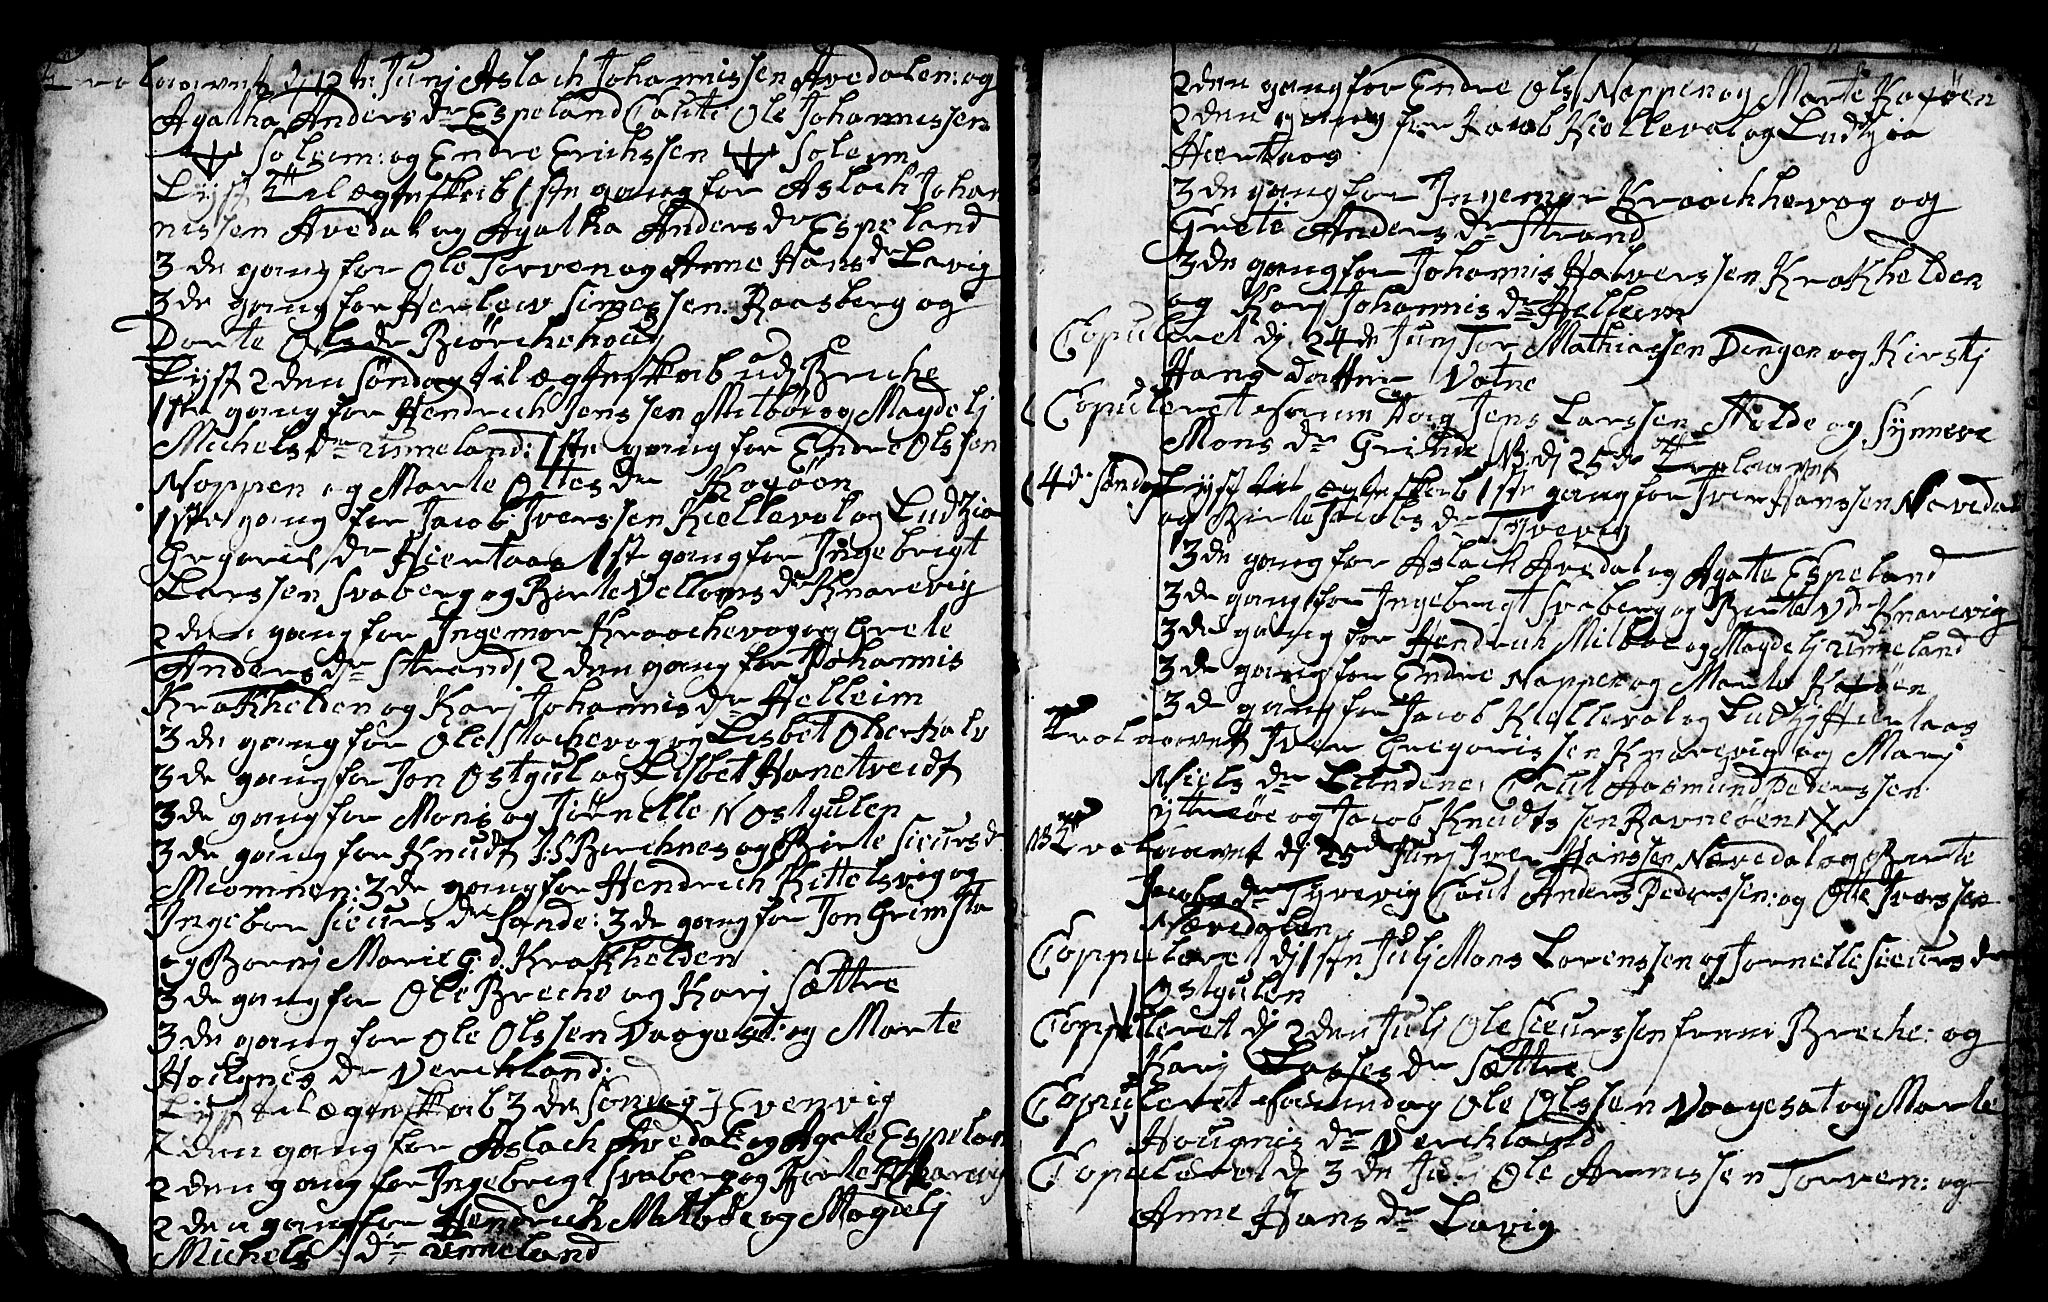 Trolaavet dj 12te Junj Aslach Johannissen Avedalen: og
Agatha Anders dr Espeland Cauti Ole Johannissen
Soleim: og Endre Erichssen Soleim
Lyst til ægteskab 1ste gang for Aslach Johan
nissen Avedal og Agatha Anders dr Espeland
3de gang for Ole Torven og Anne Hans dr Lavig
3de gang for Herlew Simessen Raasberg og
Dorte Ols dr Biørchehoud
Lyst 2den Søndag til ægteskab udj Breche
1ste gang for Hendrich Jenssen Milbør og Magdelj
Michels dr unneland: 1ste gang for Endre Olssen
Noppen og Marte Ottes dr
1ste gang for Jacob Iverssen Kiellevol og Ludzia
Gregoris dr Hiertaas 1ste gang for Ingebrigt
Larssen Svaberg og Birte Velloms dr Knarevig
2den gang for Ingemor Kraachevog og Grete
Anders dr Strand, 2den gang for Johannis
Krakhelden og Karj Johannis dr Helleim
3de gang for Ole Stachevog og Lisbet Olderkalv
3de gang for Jon Østgul og Lisbet Hanetveidt
3de gang for Mons og Tørnelle Nostgulen
3de gang for Knudt I:S Birchnes og Birte Siurs dr
Miømnen: 3de gang for Hendrich Kittelsvig og
Ingebor Siurs dr Sande: 3de gang for Jon Grimsta
og Bornj Marie G.d. Krakhelden
3de gang for Ole Breche og Karj Sættre
3de gang for Ole Olssen Vaageset: og Marte
Hougnes dr Verchland:
Lyst til ægteskab 3de Søndag j Evenvig
2den gang for Aslach Avedal og Agate Espeland
2den gang for Ingebrigt Svaberg og Birte Knarevig
2den gang for Hendrich Milbør og Magdelj
Michels dr unneland
2den gang for Endre Ols Noppen og Marte
2den gang for Jacob Kiellevol og Ludzia
Hiertaas
3de gang for Ingemor Kraachhevog og
Grete Anders dr Strand
3de gang for Johannis Halverssen Krakhelden
og Karj Johannis dr Helleim
Copuleret dj 24de Junj Tor Mathiassen Dingen og Kirstj
Hans datter Vatne
Copuleret samme dag Jens Larssen Hilde og Synneve
Mons dr Grinde NB. dj 25de Trolaavet
4de Søndag Lyst til ægteskab 1ste gang for Iver Hanssen Nævedal
og Birte Jacobs dr Tyvevig
3de gang for Aslach Avedal og Agatte Espeland
3de gang for Ingebrigt Svaberg og Birte V dr Knarevig
3de gang for Hendrich Milbør og Magdelj unneland
3de gang for Endre Noppen og Marte
3de gang for Jacob Kiellevol og Ludzj Hiertaas
Trolaavet Iver Gregorissen Knarevig og Marj
Niels dr Lundene, Caut Aasmund Pederssen
ytterøe og Jacob Knudtssen Ravneøen
NB Trolaavet dj 25de Junj Iver Hanssen Nævedal og Birte
Jacobs dr Tyvevig Caut Anders Pederssen: og Otte Iverssen
Nævedalen
Coppuleret dj 1ste Julj Mons Lorenssen og Tornelle Siurs dr
Ostgulen
Coppuleret dj 2den Julj Ole Siurssen Breche: og
Karj Lasses dr Sættre
Copuleret samme dag Ole Olssen Vaageset og Marte
Hougnis dr Verchland
Copuleret dj 3de Julj Ole Annissen Torven: og
Anne Hans dr Lavig